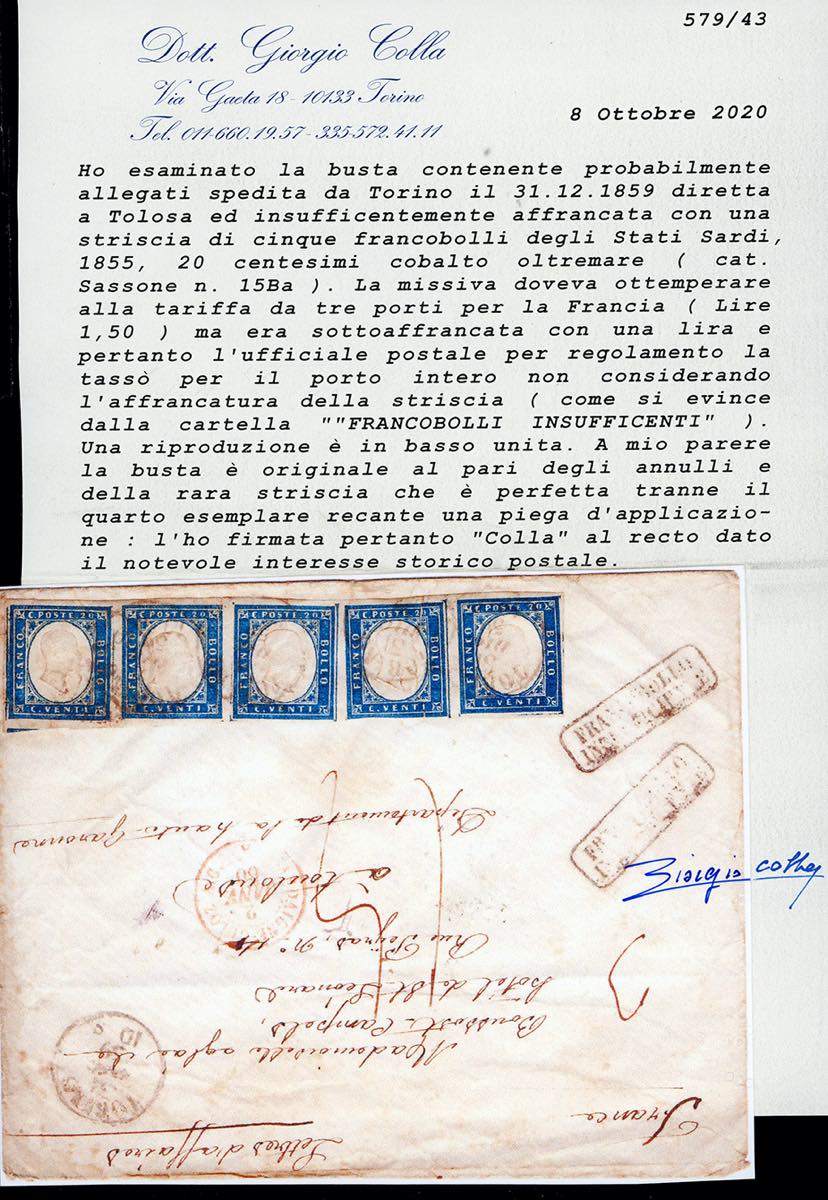 579/43
Dott. Giorgio Colla
Via Gaeta 18 - 10133 Torino
Tel. 011-660.19.57 - 335-572.41.11
8 Ottobre 2020
Ho esaminato la busta contenente probabilmente
allegati spedita da Torino il 31.12.1859 diretta
a Tolosa ed insufficentemente affrancata con una
striscia di cinque francobolli degli Stati Sardi,
1855, 20 centesimi cobalto oltremare ( cat.
Sassone n. 15Ba ). La missiva doveva ottemperare
alla tariffa da tre porti per la Francia ( Lire
1,50 ) ma era sottoaffrancata con una lira e
pertanto l'ufficiale postale per regolamento la
tassò per il porto intero non considerando
l'affrancatura della striscia ( come si evince
dalla cartella ""FRANCOBOLLI INSUFFICENTI" ).
Una riproduzione è in basso unita. A mio parere
la busta è originale al pari degli annulli e
della rara striscia che è perfetta tranne il
quarto esemplare recante una piega d'applicazio-
ne : l'ho firmata pertanto "Colla" al recto dato
il notevole interesse storico postale.
C. POSTE 20 FRANCO BOLLO C. VENTI
C. POSTE 20 FRANCO BOLLO C. VENTI
C. POSTE 20 FRANCO BOLLO C. VENTI
C. POSTE 20 FRANCO BOLLO C. VENTI
C. POSTE 20 FRANCO BOLLO C. VENTI
Giorgio Colla
Lettres d'affaires
France
Mademoiselle aglaé de
hôtel de St Léonard
à toulouse
Département de la haute Garonne
TORINO
3